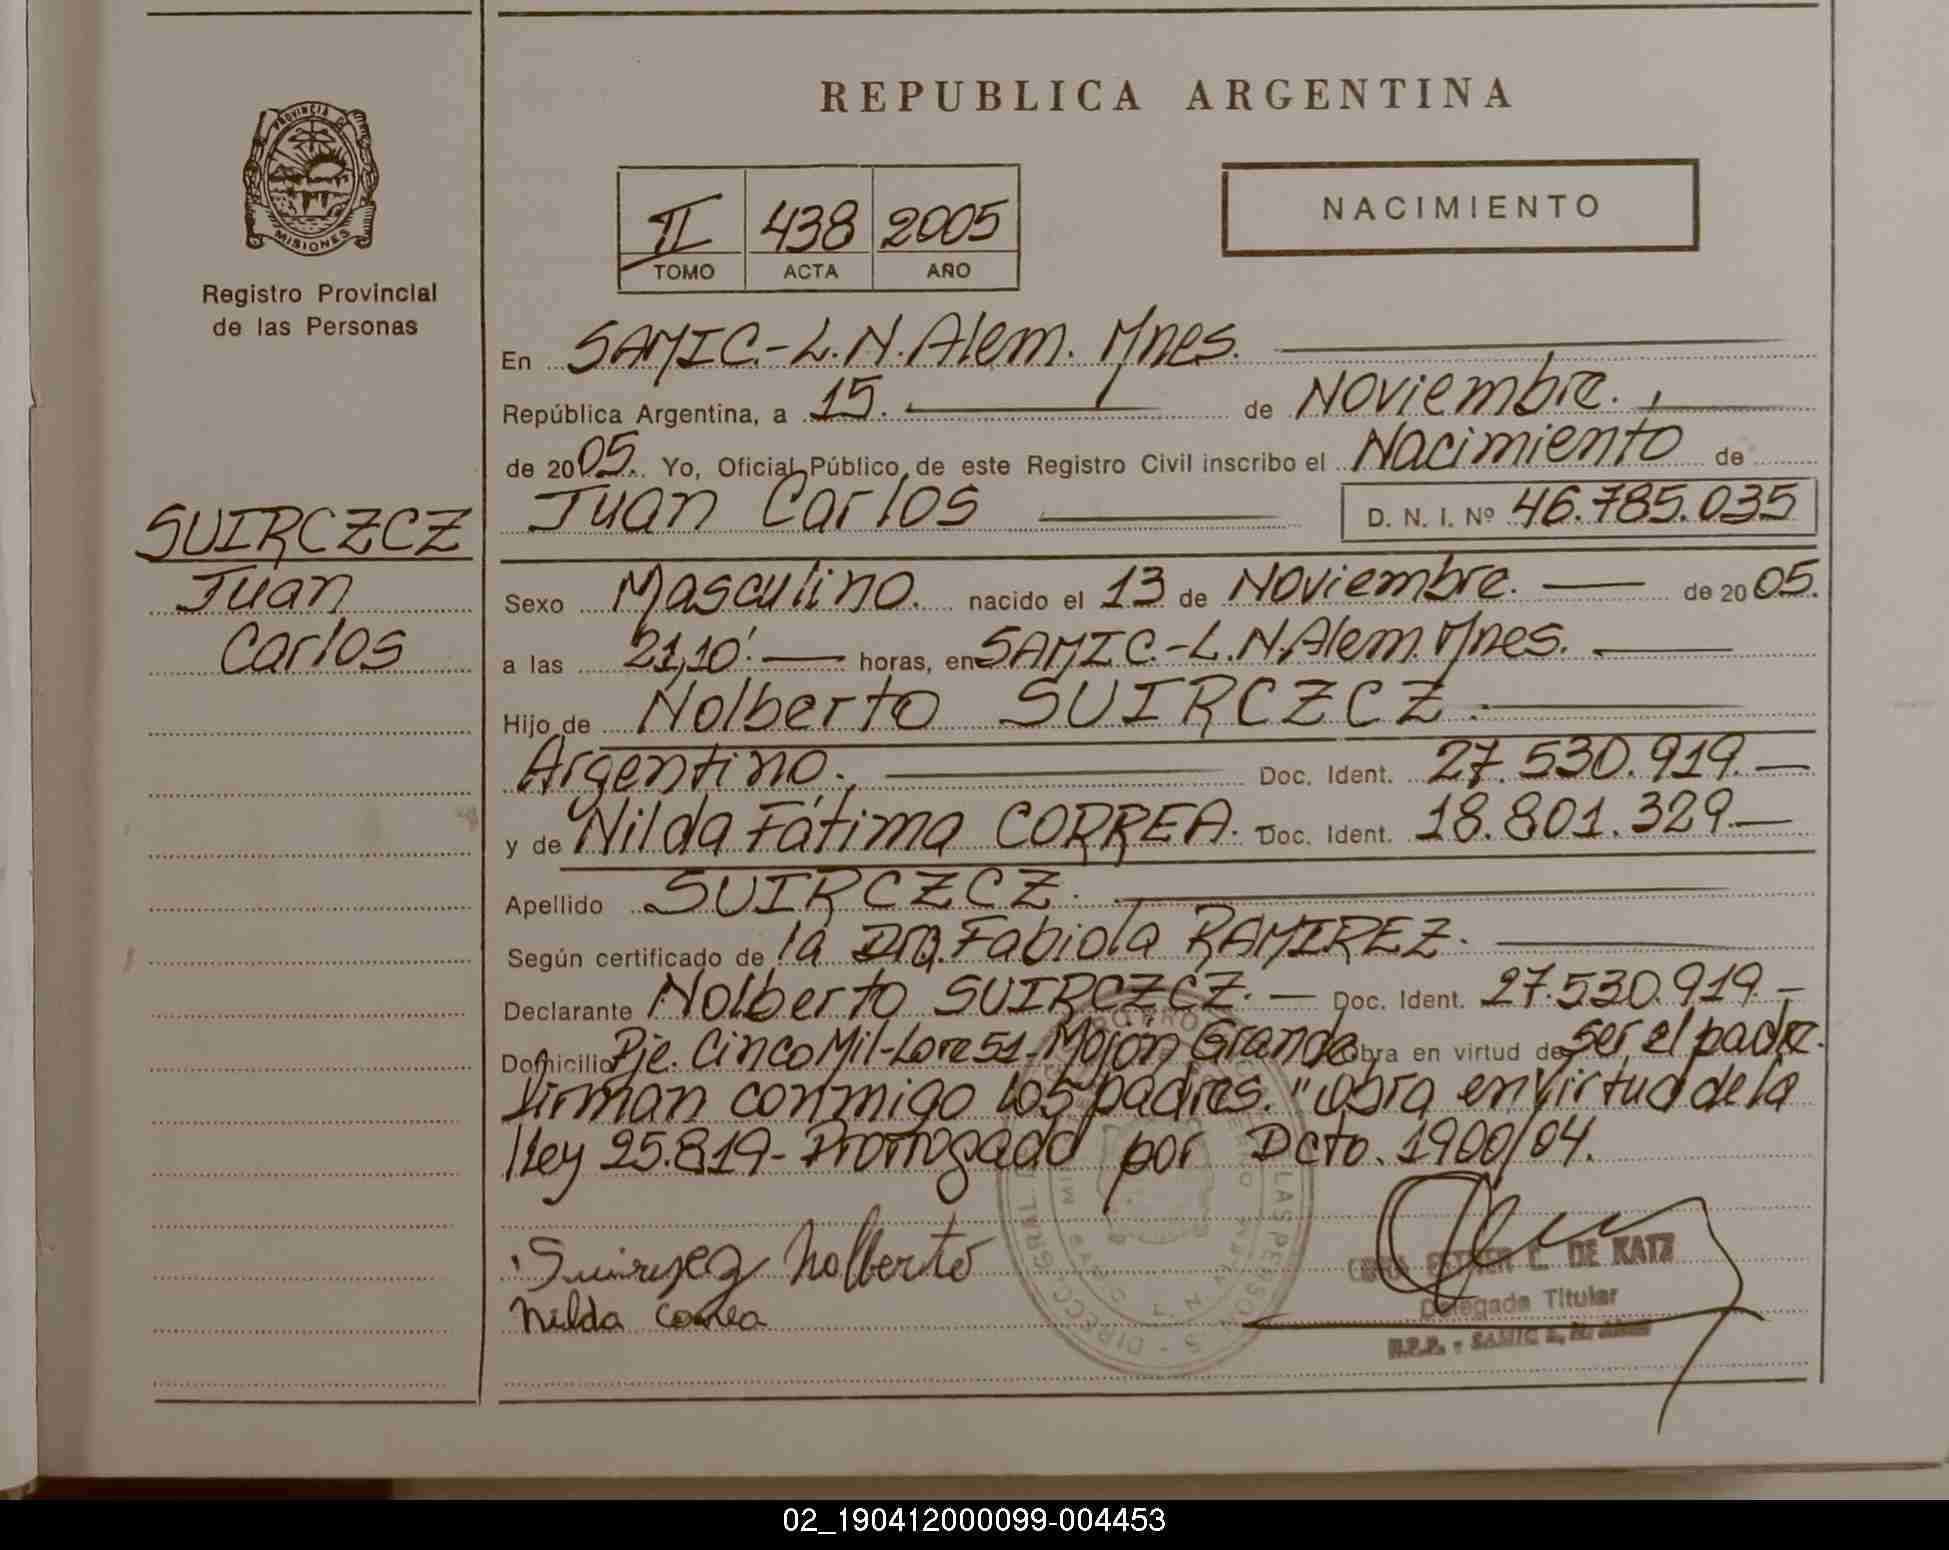 REPUBLICA ARGENTINA
PROVINCIA DE
MISIONES
Registro Provincial
de las Personas
II 438 2005
TOMO ACTA AÑO
NACIMIENTO
En SAMIC.-L.N.Alem. Mnes.
República Argentina, a 15. de Noviembre.
de 2005. Yo, Oficial Público de este Registro Civil inscribo el Nacimiento de
Juan Carlos D. N. I. Nº 46.785.035
SUIRCZCZ
Juan
Carlos
Sexo Masculino. nacido el 13 de Noviembre. de 2005.
a las 21,10'. horas, en SAMIC.-L.N.Alem. Mnes.
Hijo de Nolberto SUIRCZCZ.
Argentino. Doc. Ident. 27.530.919.
y de Nilda Fátima CORREA. Doc. Ident. 18.801.329
Apellido SUIRCZCZ.
Según certificado de la Dra. Fabiola RAMIREZ.
Declarante Nolberto SUIRCZCZ. Doc. Ident. 27.530.919.
Domicilio Pje. Cinco Mil-Lote 51-Mojón Grande Obra en virtud de ser el padre.
Firman conmigo los padres. "Obra en virtud de la
lley 25.819- Prorrogado por Dcto. 1900/04.
Nolberto
Nilda Correa
ESTHER C. DE KATZ
Delegada Titular
R.P.P. - SAMIC
LAS PERSONAS - DIRECC
02_190412000099-004453